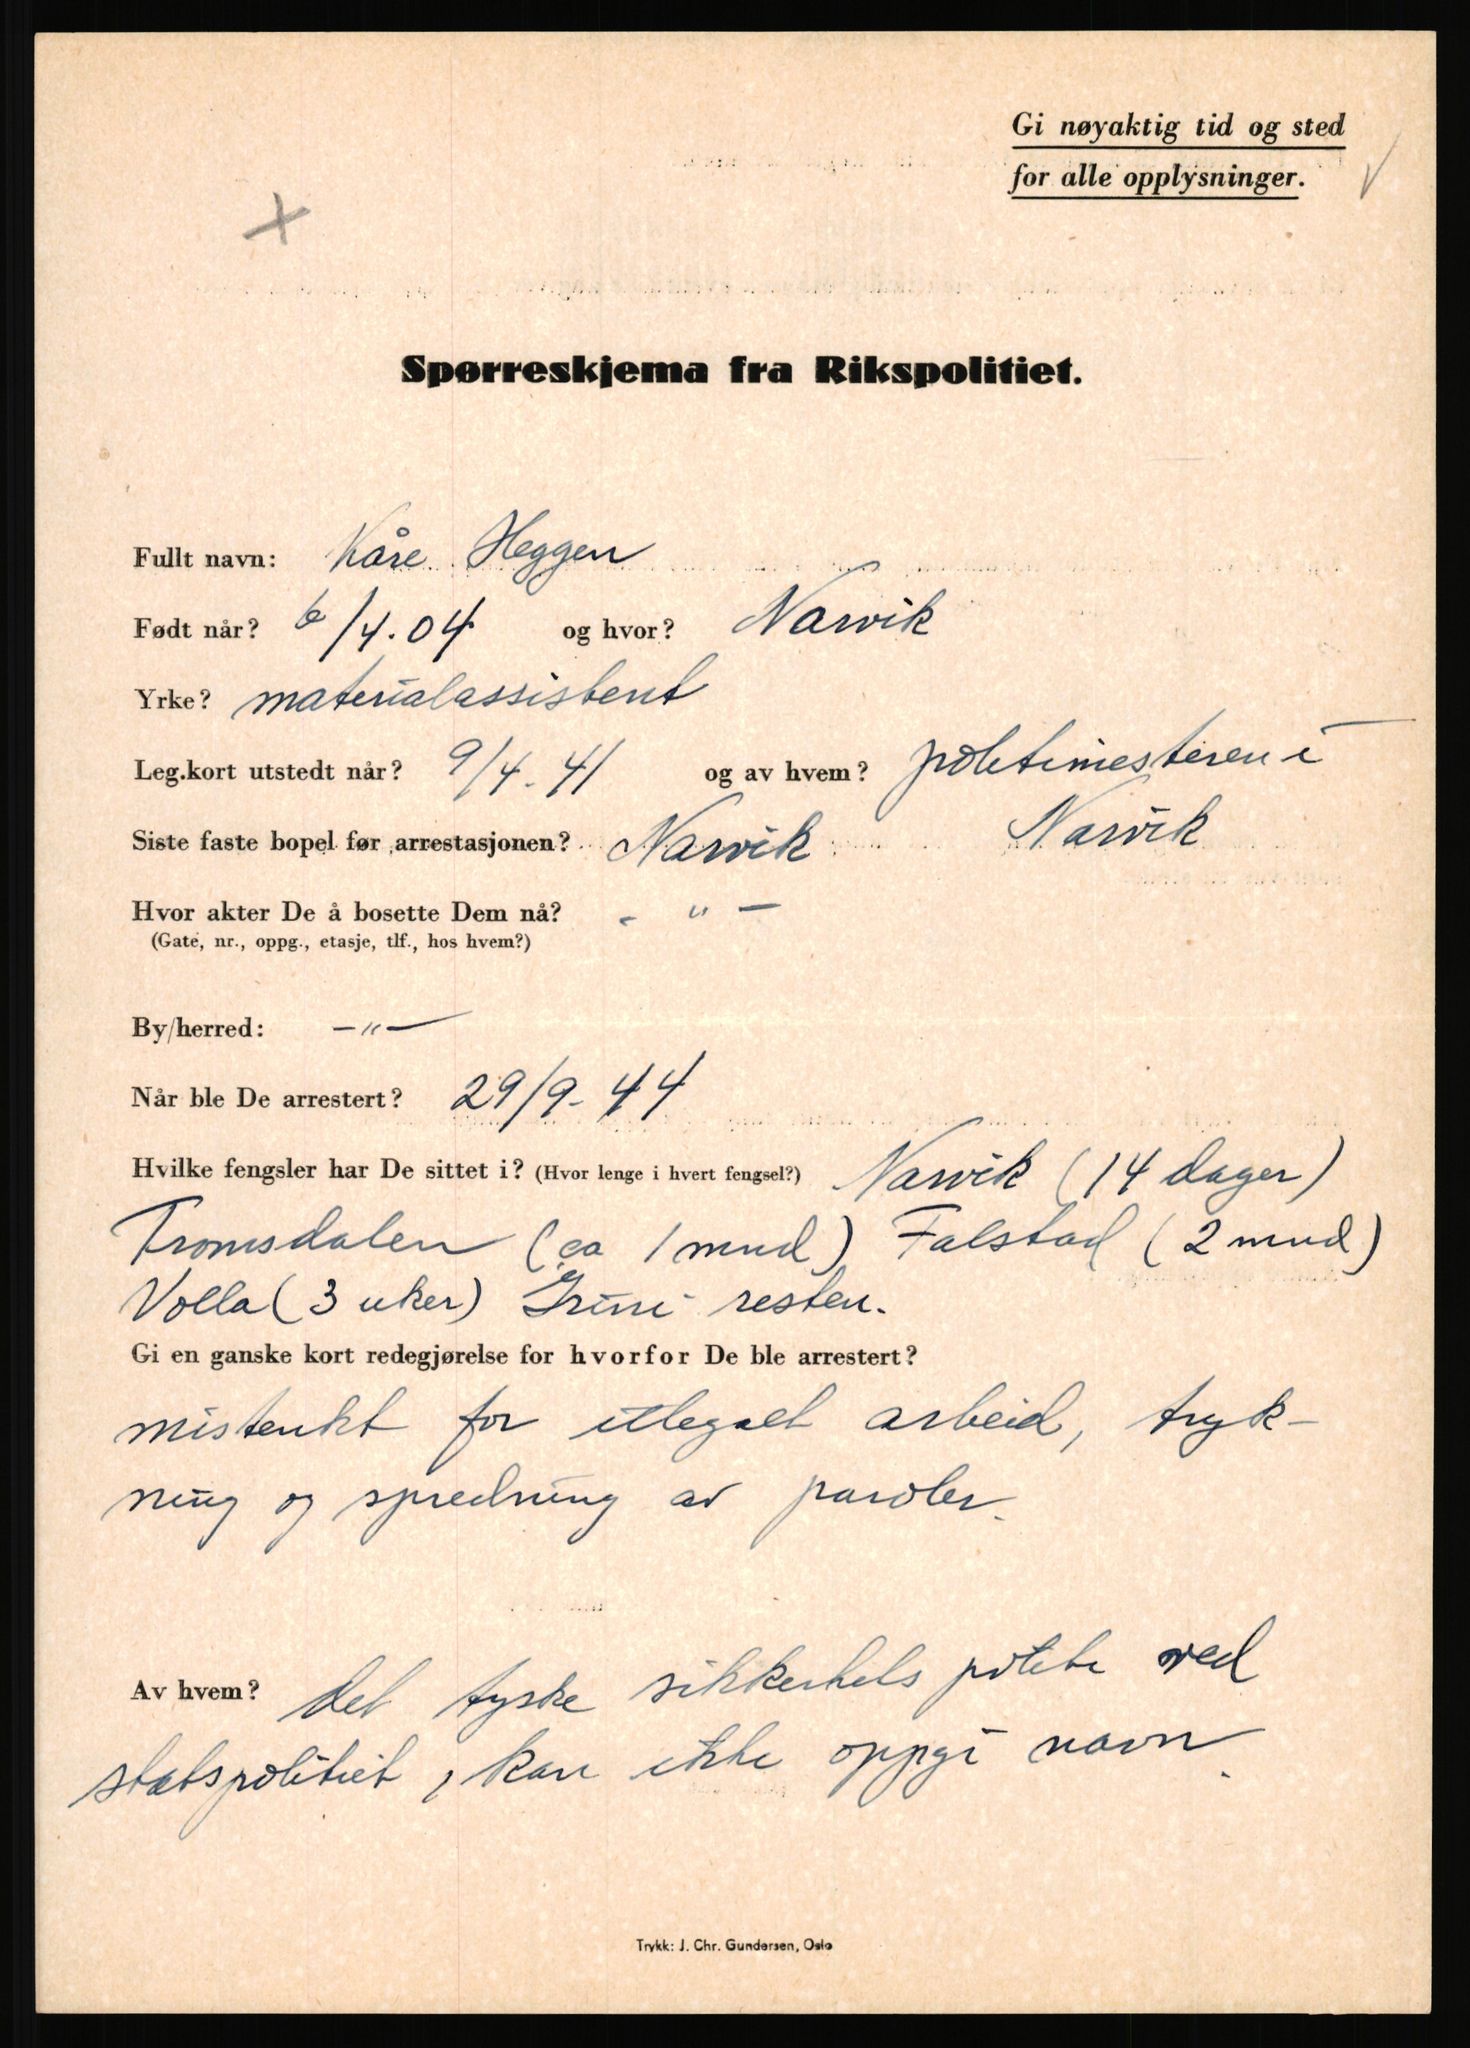 Gi nøyaktig tid og sted
for alle opplysninger.
Spørreskjema fra Rikspolitiet.
Fullt navn: Kåre Heggen
Født når? 6/4.04 og hvor? Narvik
Yrke? materialassistent
Leg.kort utstedt når? 9/4.41 og av hvem? politimesteren i
Siste faste bopel før arrestasjonen? Narvik Narvik
Hvor akter De å bosette Dem nå? - " -
(Gate, nr., oppg., etasje, tlf., hos hvem?)
By/herred: -"-
Når ble De arrestert? 29/9-44
Hvilke fengsler har De sittet i? (Hvor lenge i hvert fengsel?) Narvik (14 dager)
Tromsdalen (ca 1 mnd) Falstad (2 mnd)
Volla (3 uker) Grini resten.
Gi en ganske kort redegjørelse for hvorfor De ble arrestert?
mistenkt for illegalt arbeid, tryk-
ning og spredning av paroler.
Av hvem? det tyske sikkerhets politi ved
statspolitiet, kan ikke oppgi navn.
Trykk: J. Chr. Gundersen, Oslo